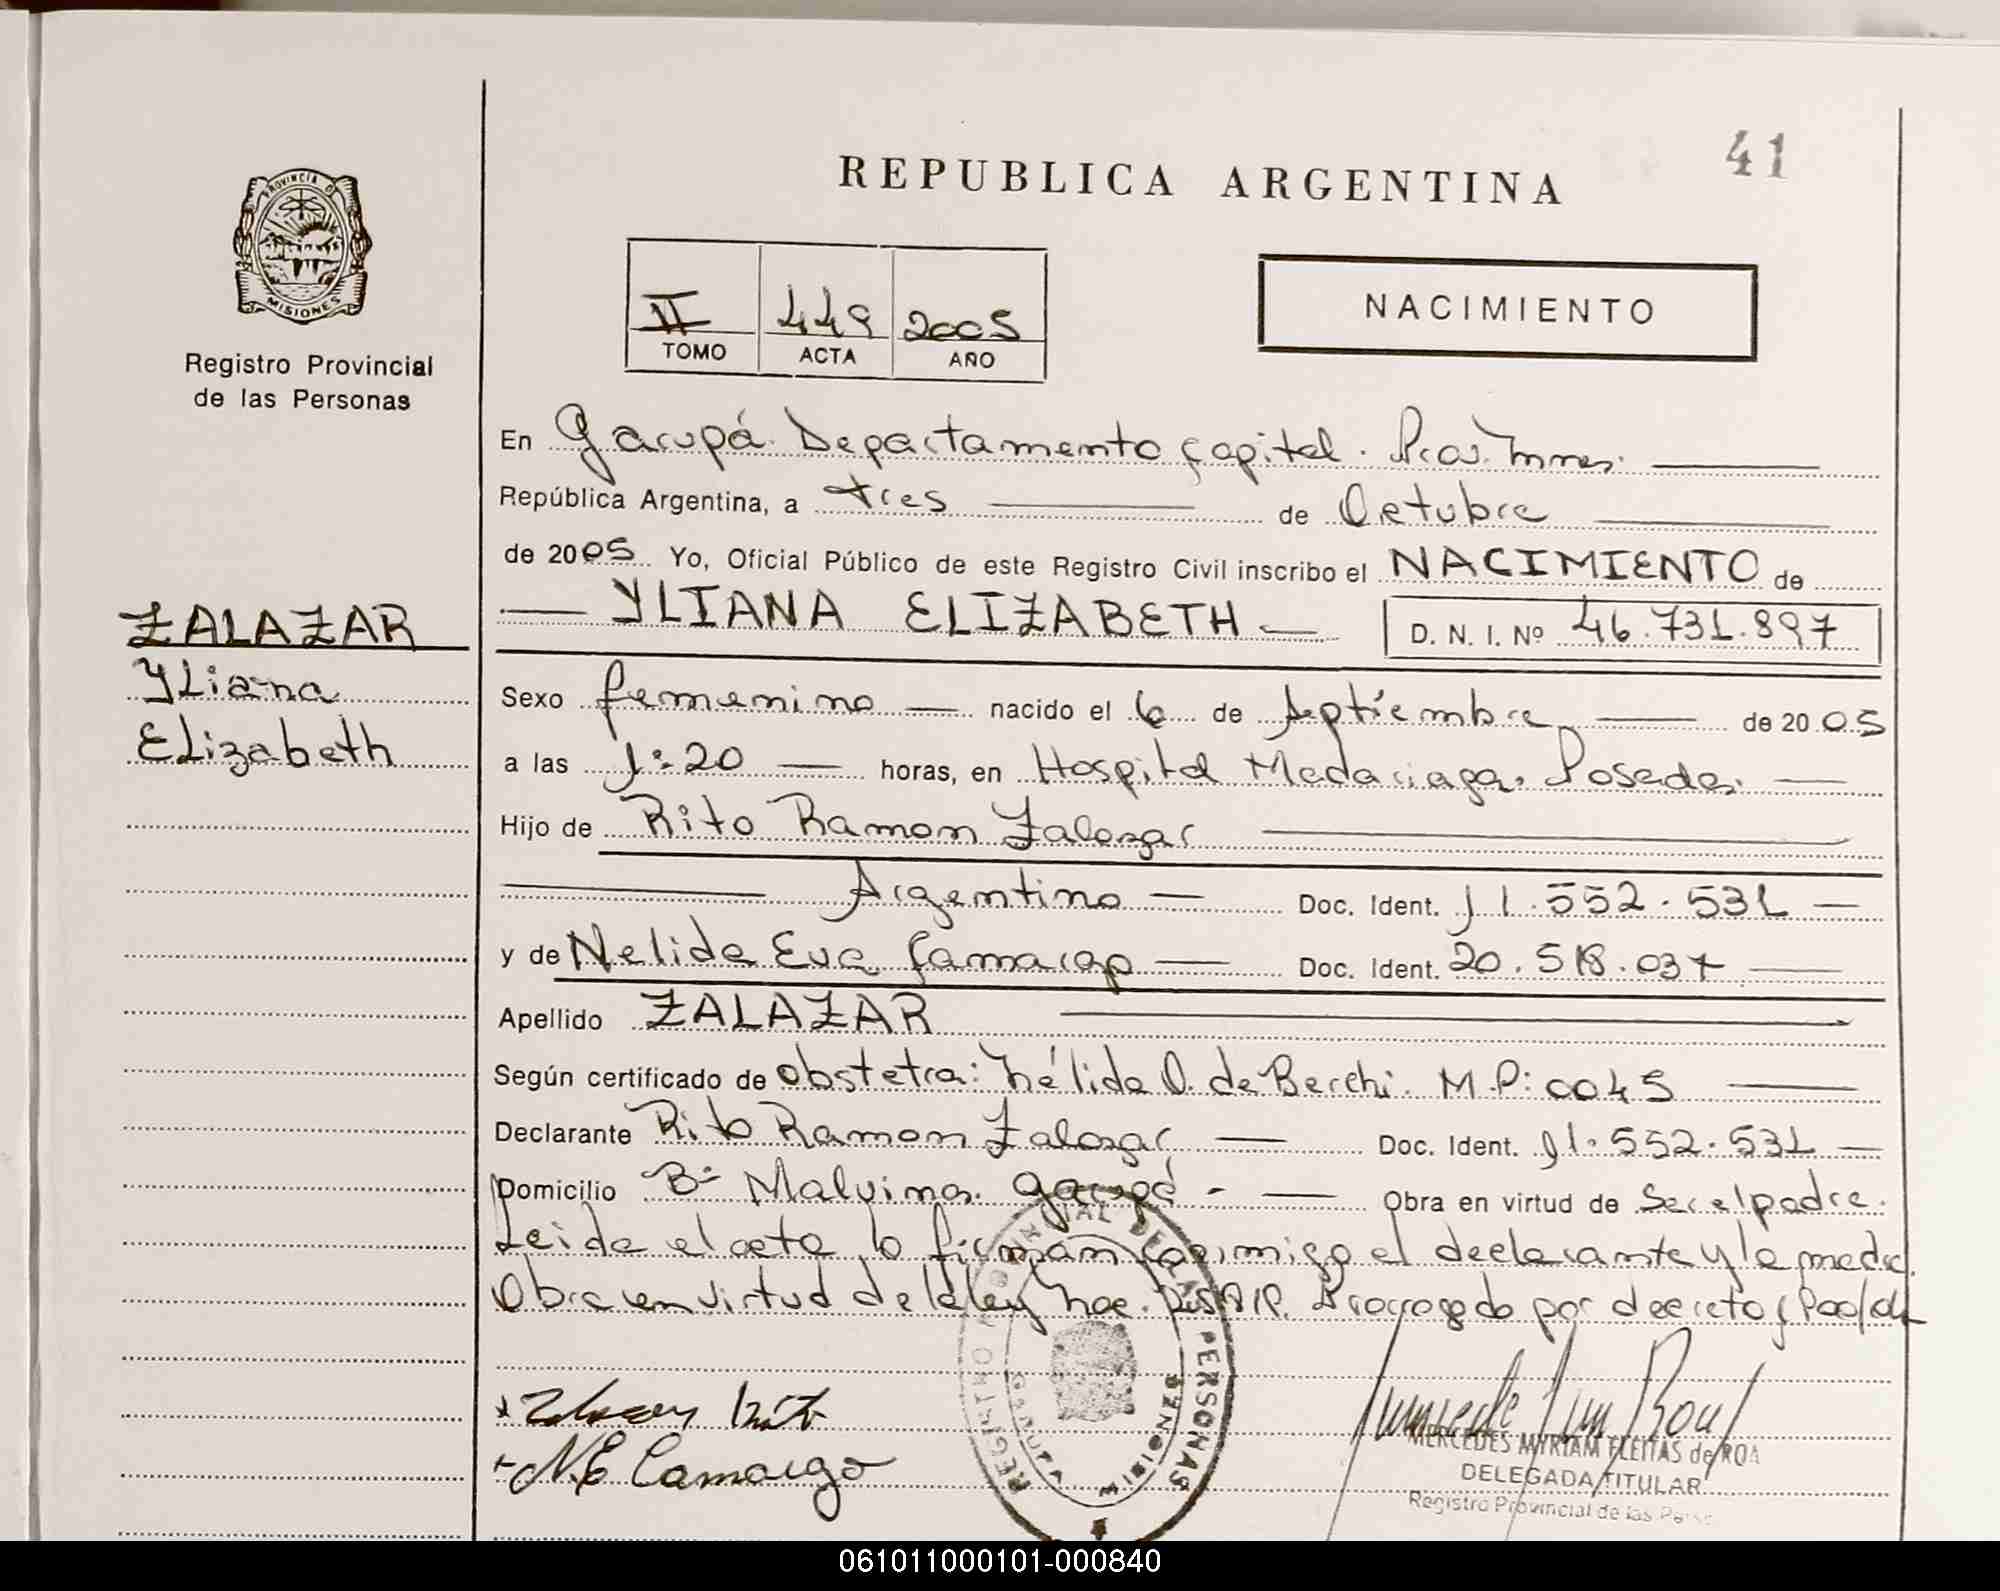 41
REPUBLICA ARGENTINA
PROVINCIA D
MISIONES
Registro Provincial
de las Personas
II 449 2005
TOMO ACTA AÑO
NACIMIENTO
En Garupá. Departamento Capital. Pcia. Mnes.
República Argentina, a tres de Octubre
de 2005 Yo, Oficial Público de este Registro Civil inscribo el NACIMIENTO de
YLIANA ELIZABETH D. N. I. Nº 46.731.897
ZALAZAR
Yliana
Elizabeth
Sexo femenino nacido el 6 de septiembre de 2005
a las 1:20 horas, en Hospital Madariaga. Posadas.
Hijo de Rito Ramon Zalazar
Argentino Doc. Ident. 11.552.531
y de Nelida Eva Camargo Doc. Ident. 20.518.037
Apellido ZALAZAR
Según certificado de obstetra: Nélida O. de Becchi. M.P: 0045
Declarante Rito Ramon Zalazar Doc. Ident. 11.552.531
Domicilio Bº Malvinas. Garupá - Obra en virtud de Ser el padre.
Leida el acta lo firman conmigo el declarante y la madre.
Obra en virtud de la ley Prorrogado por decreto
Zalazar Rito
N.E Camargo
REGISTRO PROVINCIAL DE LAS PERSONAS
GARUPA MISIONES
MERCEDES MYRIAM FLEITAS de ROA
DELEGADA TITULAR
Registro Provincial de las Perso
061011000101-000840